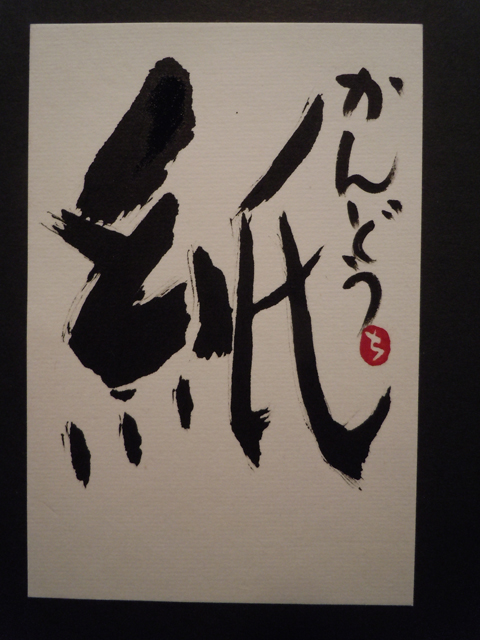 かんどう
ち
紙